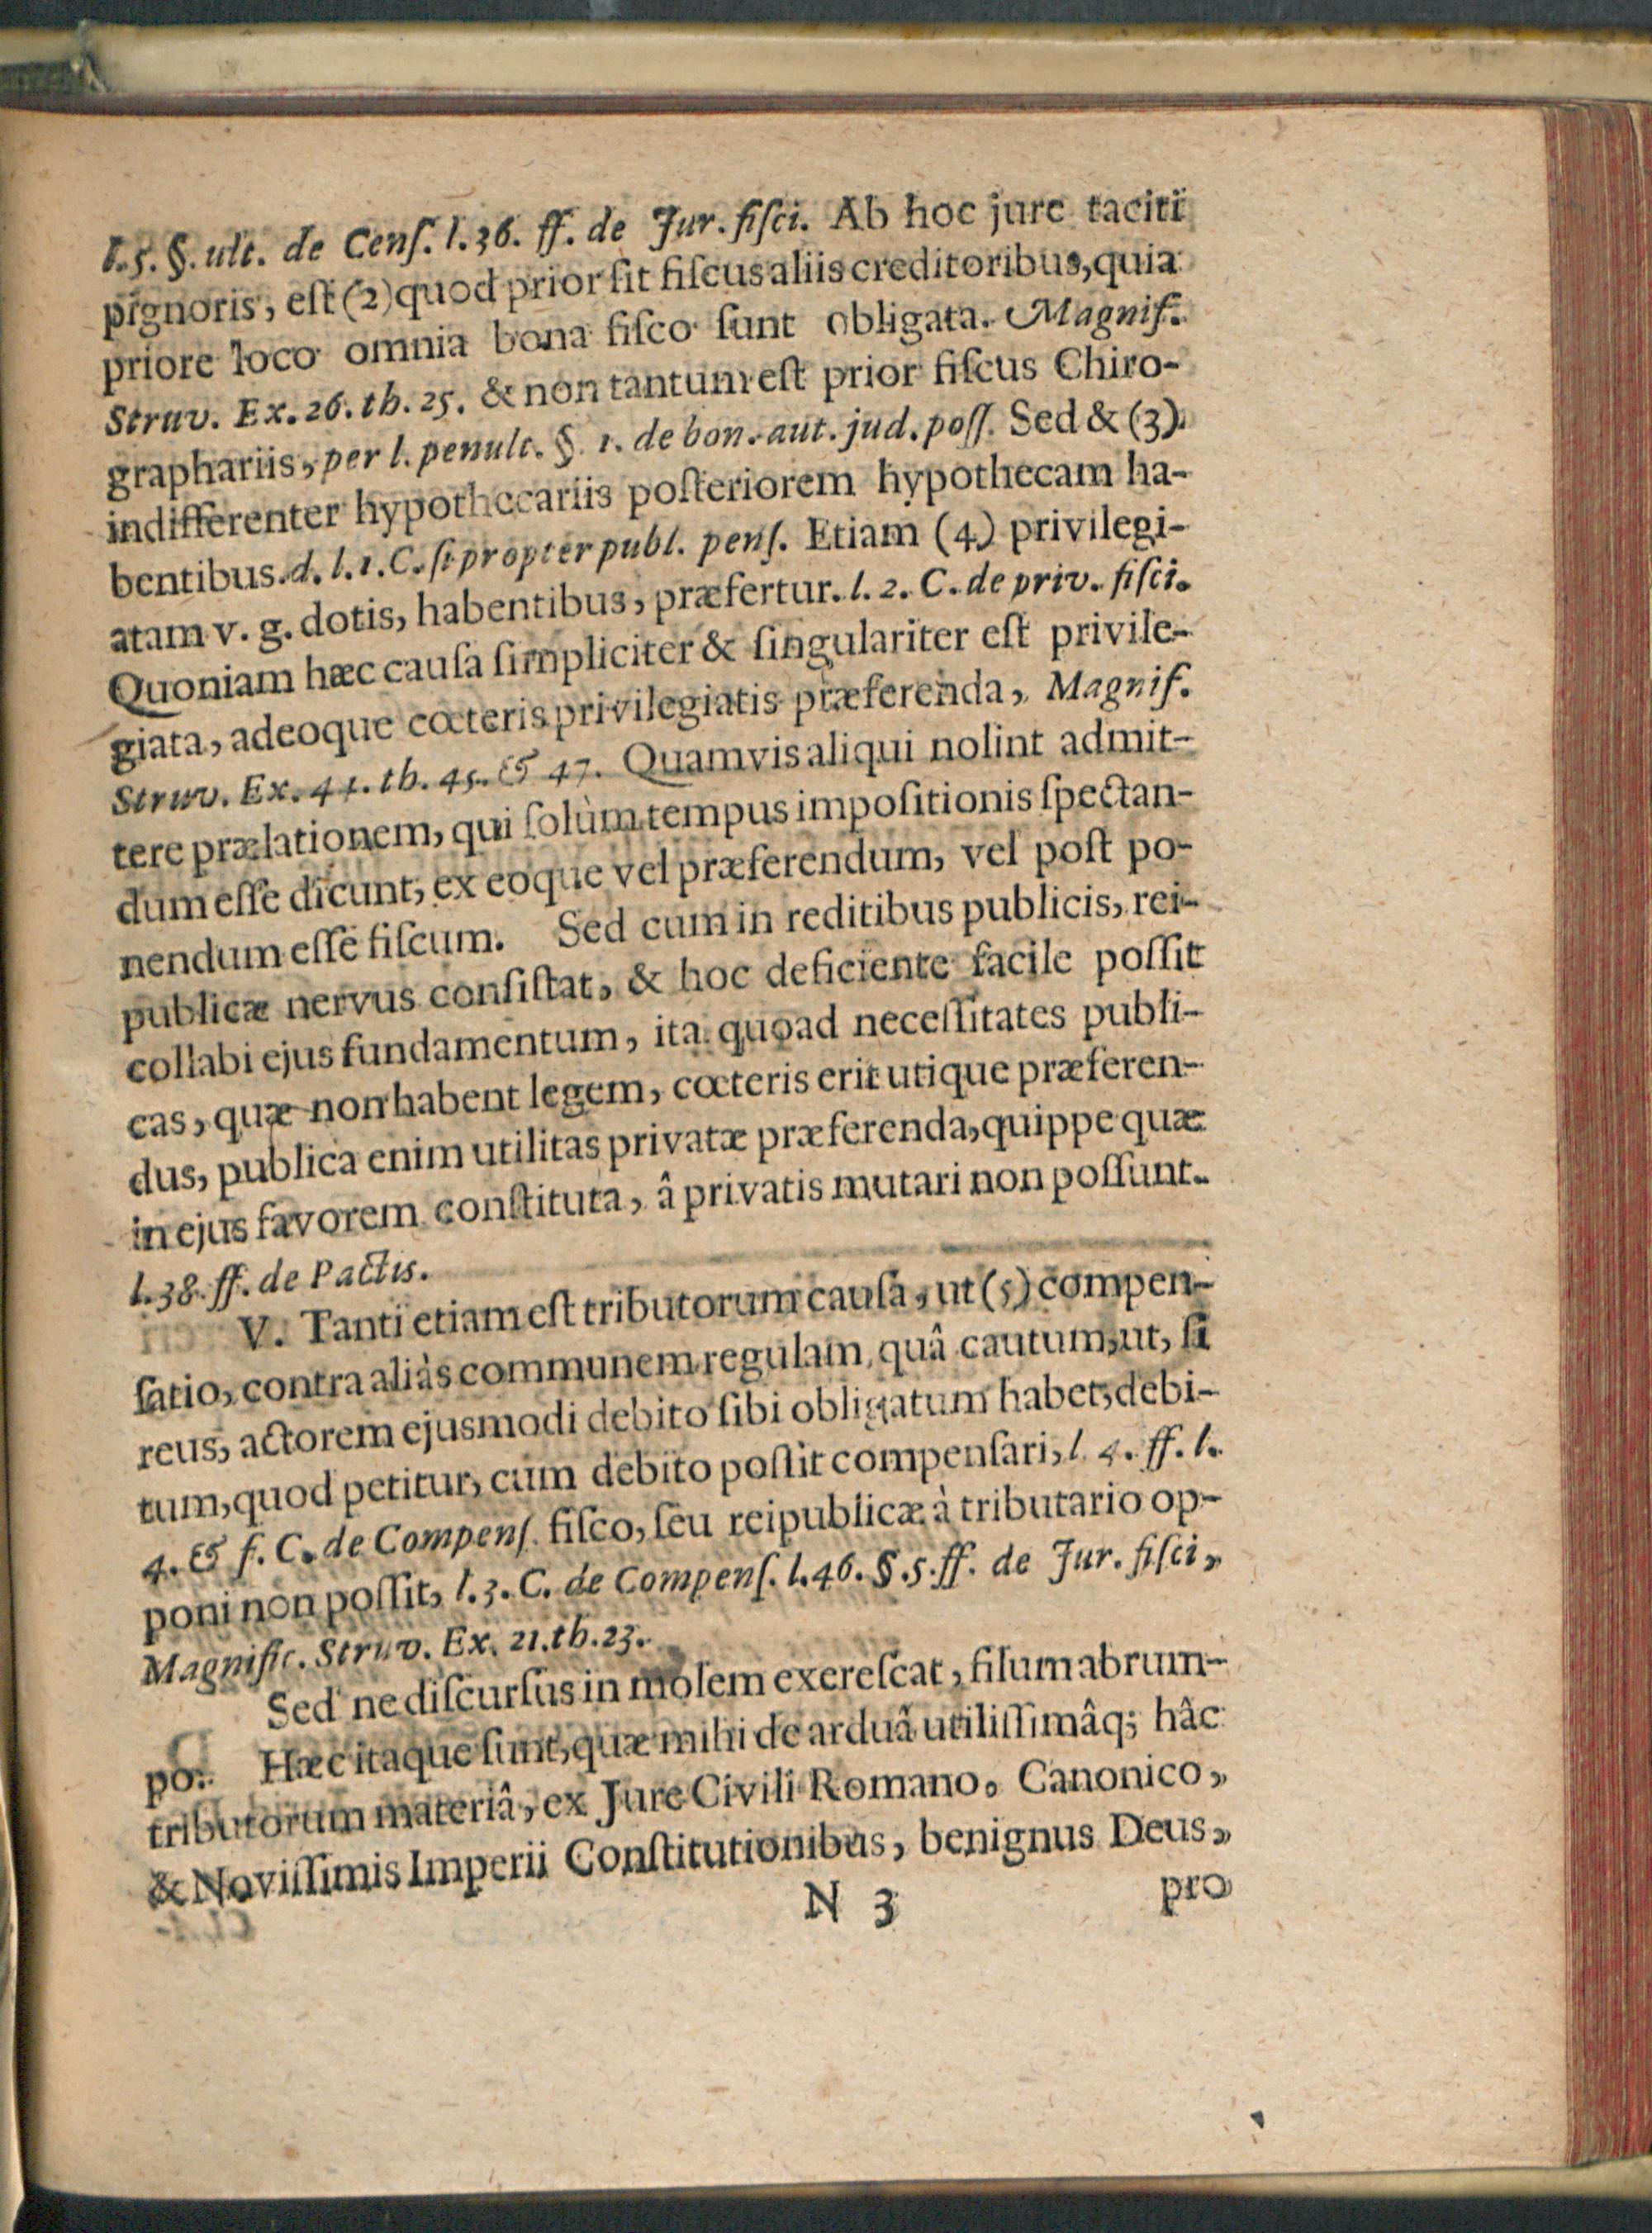 l. 5. §. ult. de Cenſ. l. 36. ff. de Jur. fiſci. Ab hoc jure taciti
pignoris, eſt (2) quod prior ſit fiſcus aliis creditoribus, quia
priore loco omnia bona fiſco ſunt obligata. Magnif.
Struv. Ex. 26. th. 25. & non tantum eſt prior fiſcus Chiro-
graphariis, per l. penult. §. 1. de bon. aut. jud. poſſ. Sed & (3)
indifferenter hypothecariis poſteriorem hypothecam ha-
bentibus. d. l. 1. C. ſi propter publ. penſ. Etiam (4) privilegi-
atam v. g. dotis, habentibus, præfertur. l. 2. C. de priv. fiſci.
Quoniam hæc cauſa ſimpliciter & ſingulariter eſt privile-
giata, adeoque cœteris privilegiatis præferenda, Magnif.
Struv. Ex. 44. th. 45. & 47. Quamvis aliqui nolint admit-
tere prælationem, qui ſolùm tempus impoſitionis ſpectan-
dum eſſe dicunt, ex eoque vel præferendum, vel poſt po-
nendum eſſe fiſcum. Sed cum in reditibus publicis, rei-
publicæ nervus conſiſtat, & hoc deficiente facile poſſit
collabi ejus fundamentum, ita quoad neceſſitates publi-
cas, quæ non habent legem, cœteris erit utique præferen-
dus, publica enim utilitas privatæ præferenda, quippe quæ
in ejus favorem conſtituta, â privatis mutari non poſſunt.
l. 38. ff. de Pactis.
V. Tanti etiam eſt tributorum cauſa, ut (5) compen-
ſatio, contra aliàs communem regulam, quâ cautum, ut, ſi
reus, actorem ejusmodi debito ſibi obligatum habet, debi-
tum, quod petitur, cum debito poſſit compenſari, l. 4. ff. l.
4. & f. C. de Compenſ. fiſco, ſeu reipublicæ à tributario op-
poni non poſſit, l. 3. C. de Compenſ. l. 46. §. 5. ff. de Jur. fiſci,
Magnific. Struv. Ex. 21. th. 23.
Sed ne diſcurſus in molem exereſcat, filum abrum-
po. Hæc itaque ſunt, quæ mihi de arduâ utiliſſimâq; hâc
tributorum materiâ, ex Jure Civili Romano. Canonico,
& Noviſſimis Imperii Conſtitutionibus, benignus Deus,
N 3
pro